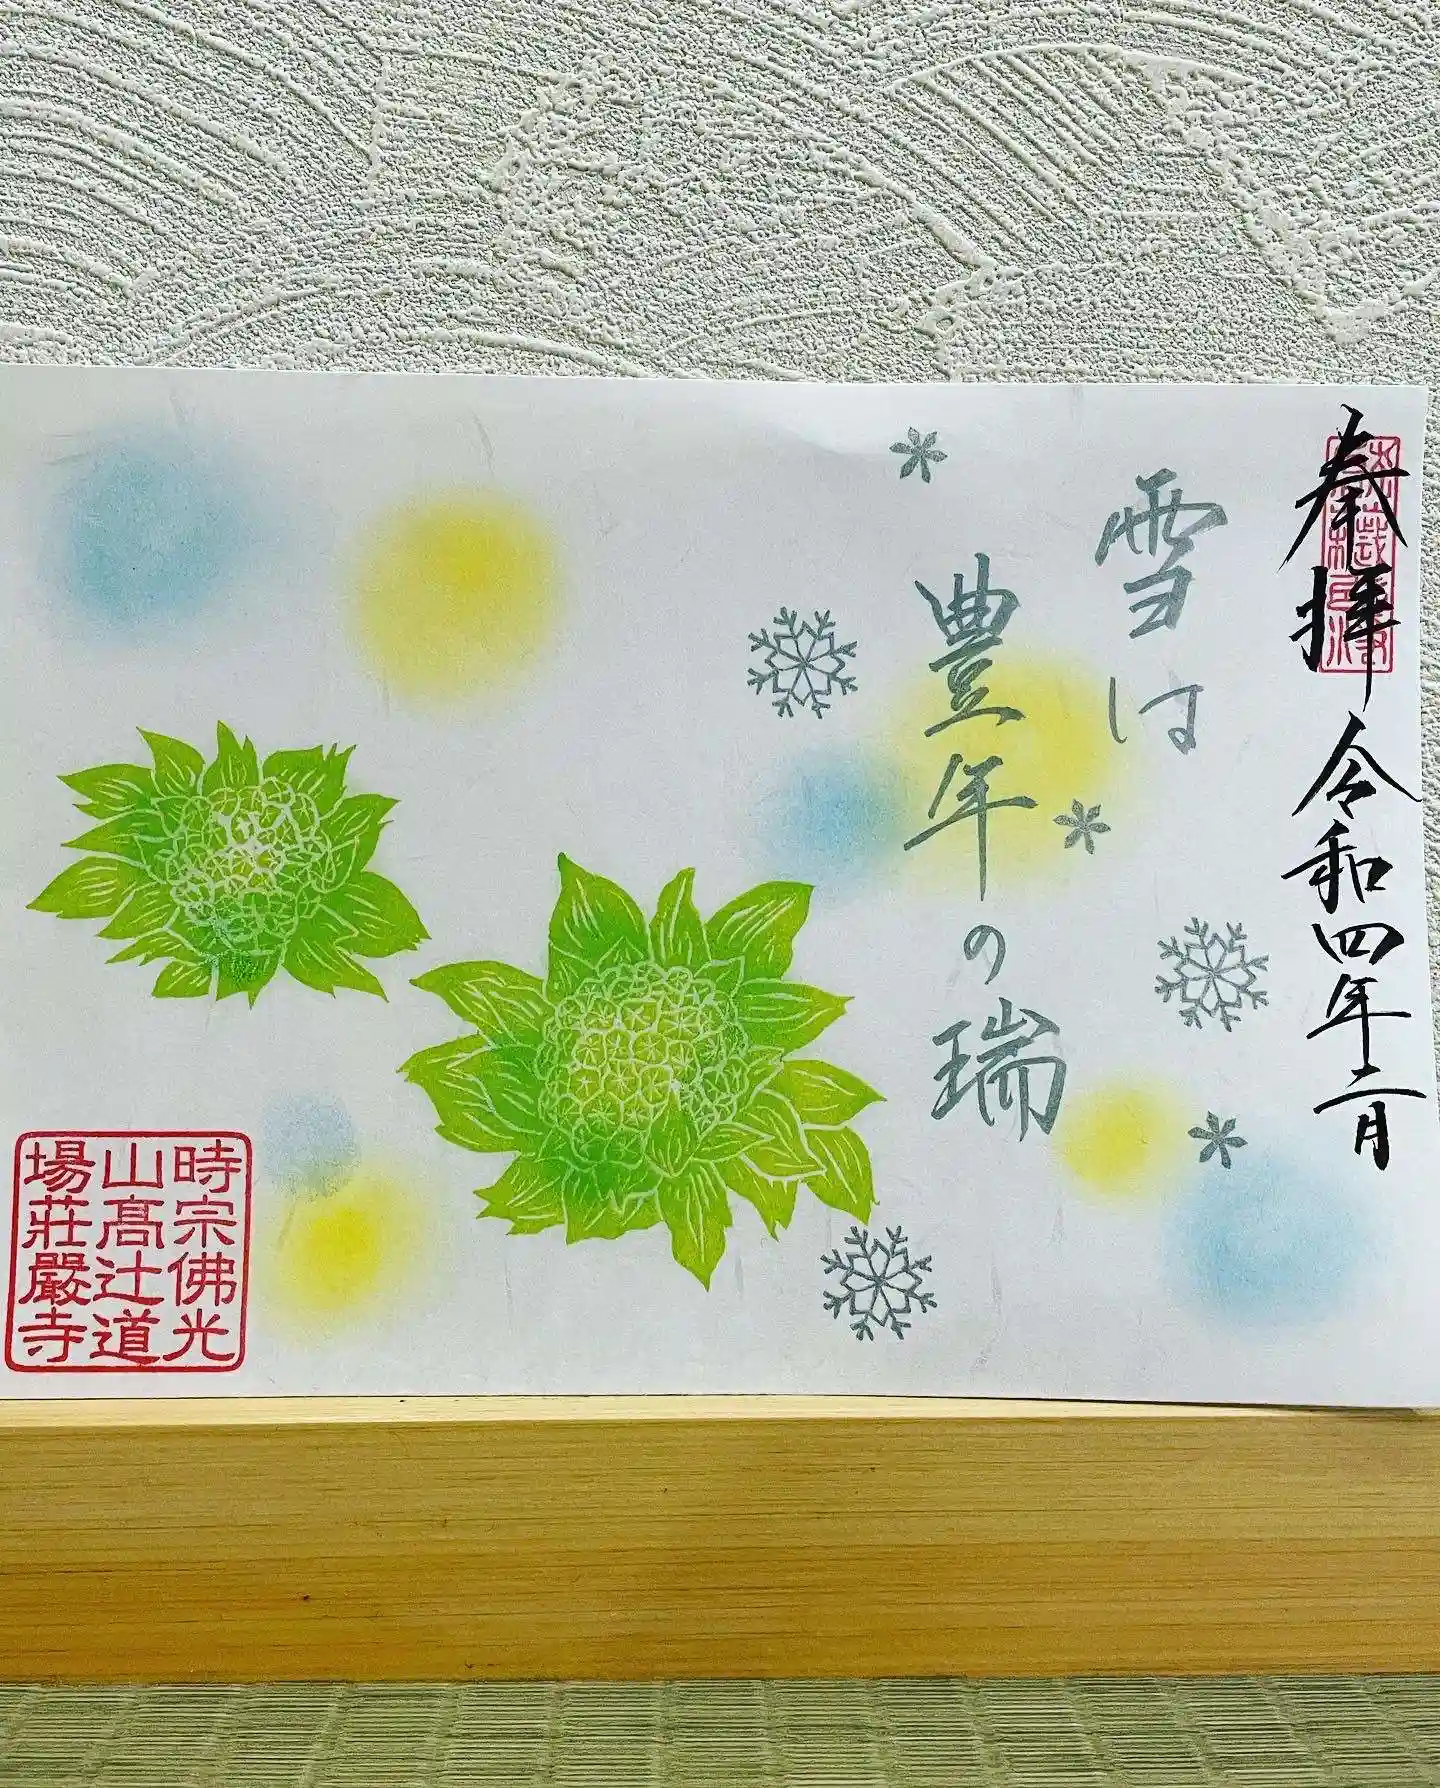 奉拝 令和四年二月
雪は
豊年の瑞
時宗佛光
山髙辻道
場莊嚴寺